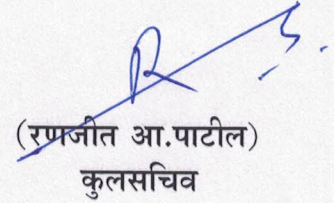 (रणजीत आ.पाटील)
कुलसचिव